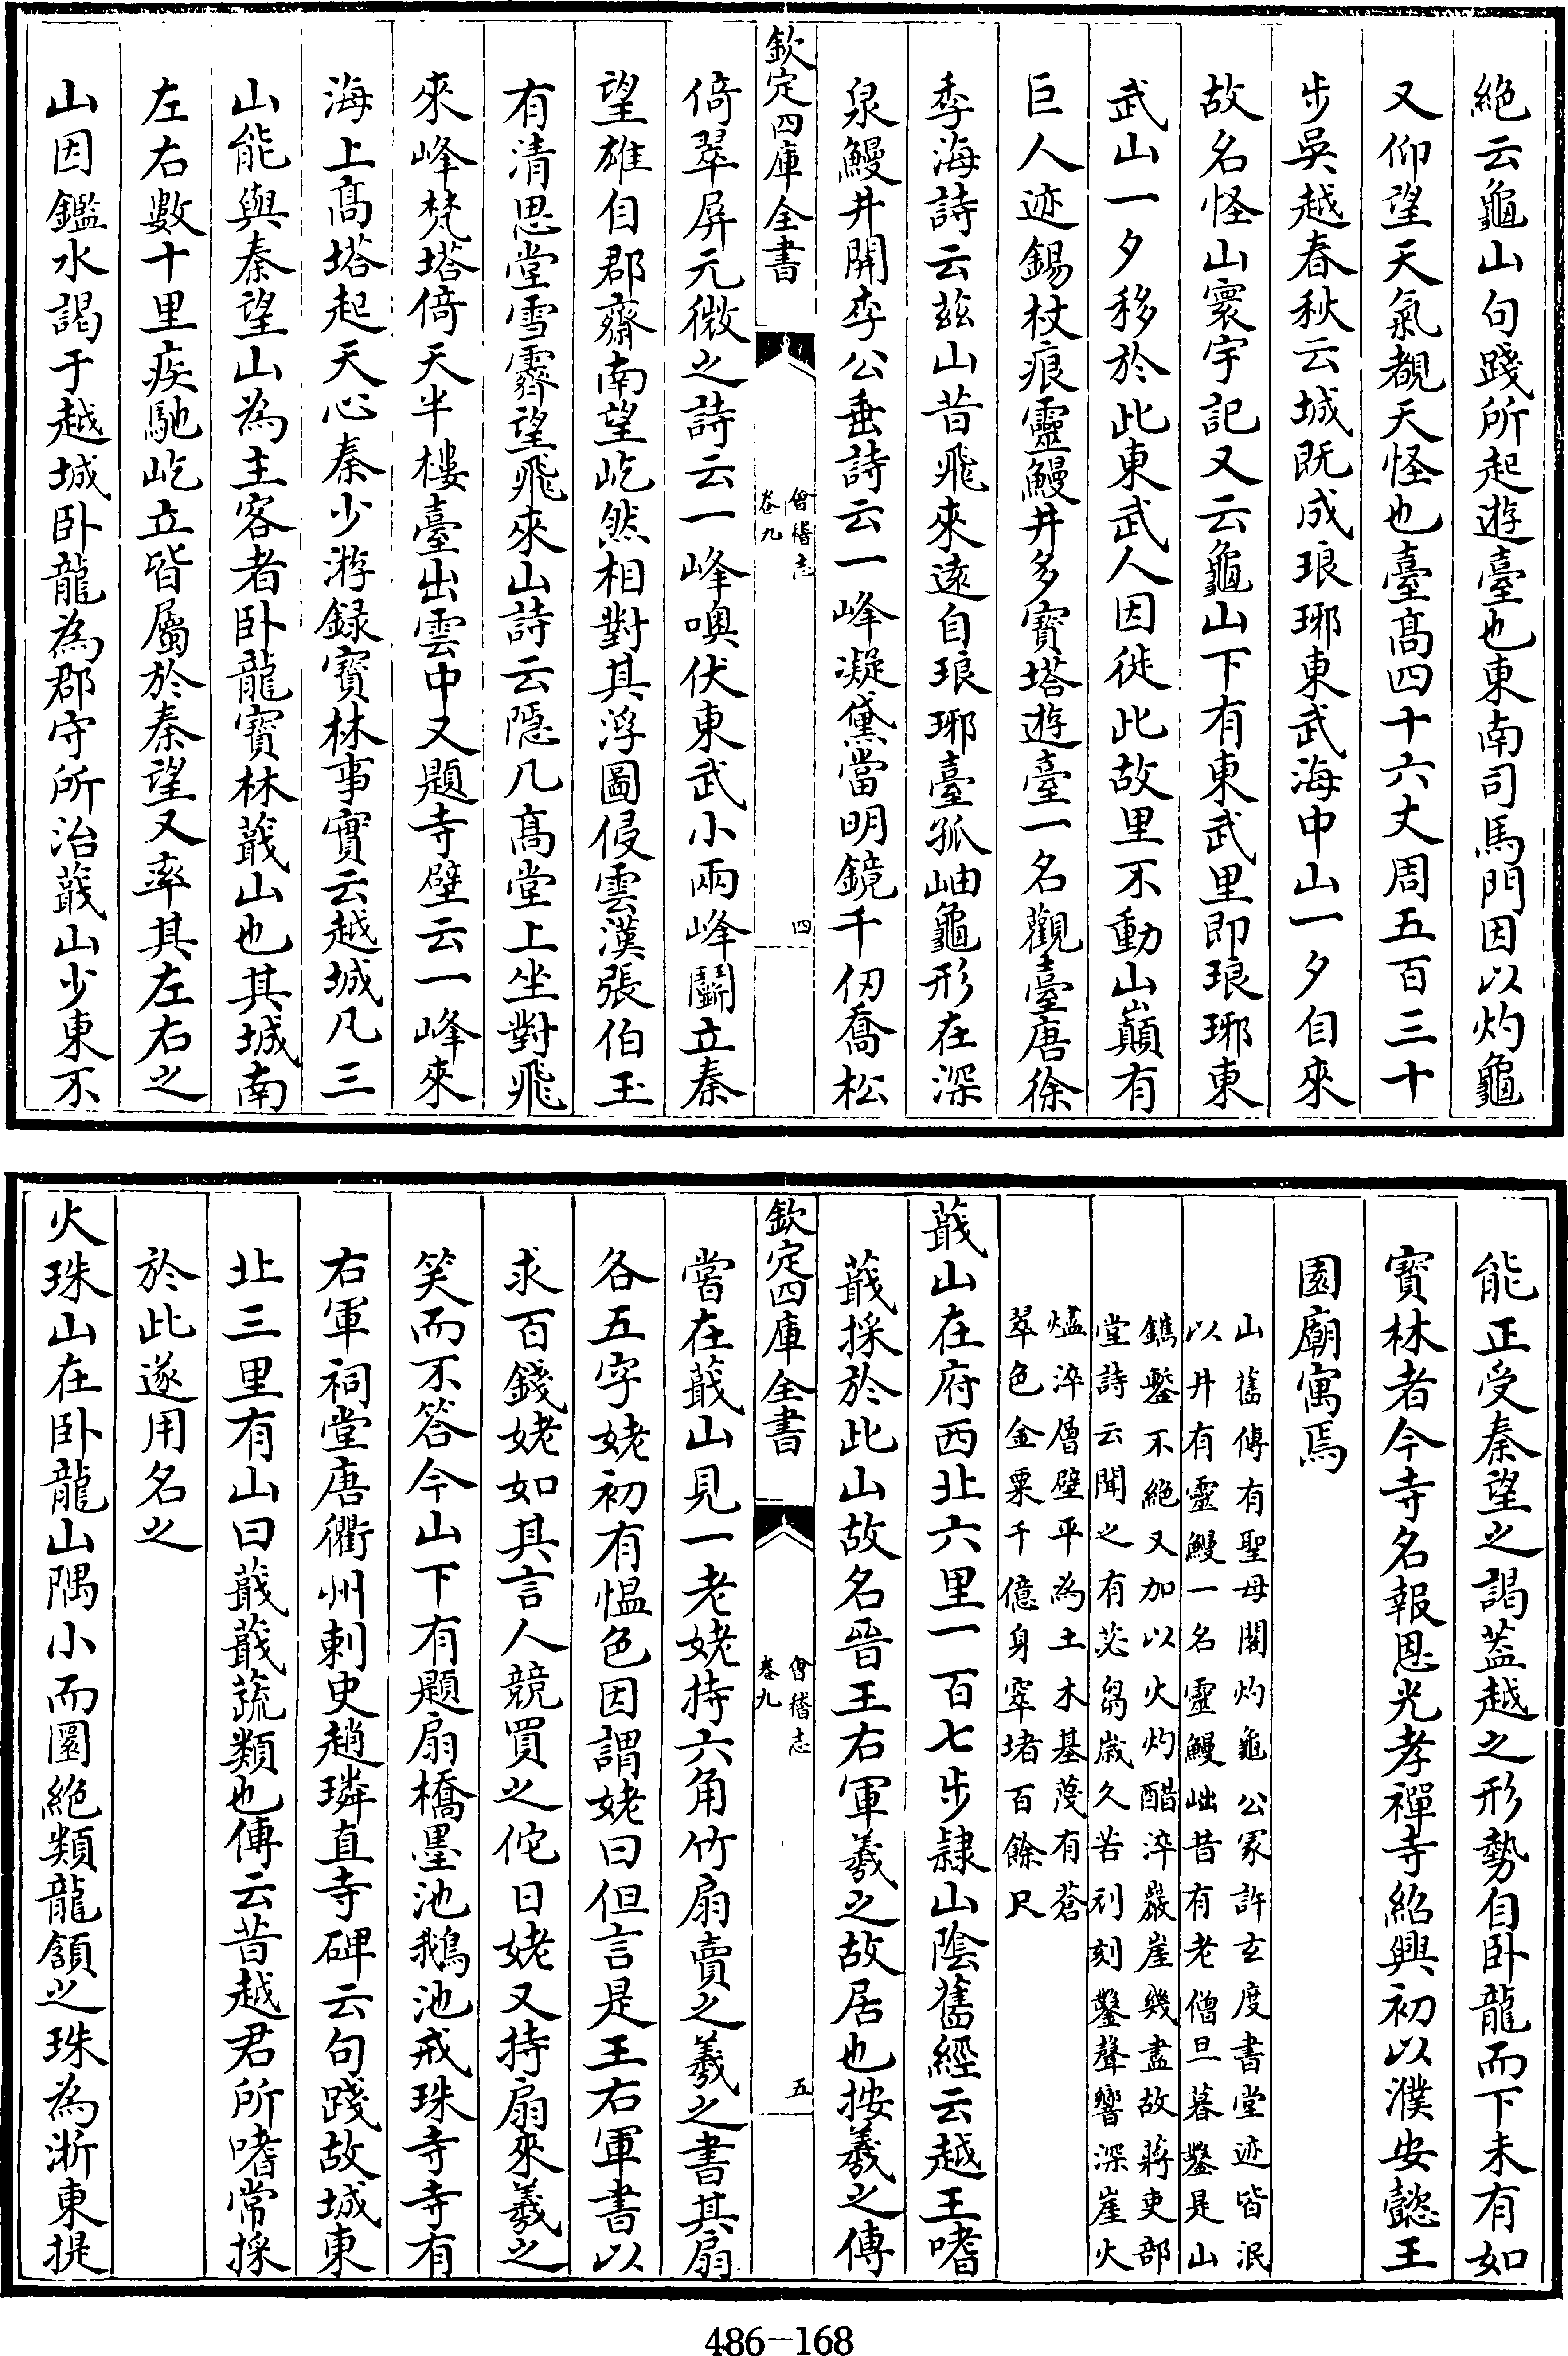 絶云龜山句踐所起遊臺也東南司馬門因以灼龜
又仰望天氣覩天怪也臺髙四十六丈周五百三十
步吳越春秋云城既成琅琊東武海中山一夕自來
故名怪山寰宇記又云龜山下有東武里即琅琊東
武山一夕移於此東武人因徙此故里不動山巔有
巨人迹錫杖痕靈鰻井多寳塔遊臺一名觀臺唐徐
季海詩云兹山昔飛來逺自琅琊臺孤岫龜形在深
泉鰻井開李公垂詩云一峰凝黛當明鏡千仞喬松
欽定四庫全書
會稽志
卷九
四
倚翠屏元微之詩云一峰噢伏東武小兩峰鬭立秦
望雄自郡齋南望屹然相對其浮圖侵雲漢張伯玉
有清思堂雪霽望飛來山詩云隱几髙堂上坐對飛
來峰梵塔倚天半樓臺出雲中又題寺壁云一峰來
海上髙塔起天心秦少游録寳林事實云越城凡三
山能與秦望山為主客者卧龍寳林蕺山也其城南
左右數十里疾馳屹立皆屬於秦望又率其左右之
山因鑑水謁于越城卧龍為郡守所治蕺山少東不
能正受秦望之謁葢越之形勢自卧龍而下未有如
寳林者今寺名報恩光孝禪寺紹興初以濮安懿王
園廟寓焉
山舊傳有聖母閣灼龜公冢許玄度書堂迹皆泯
以井有靈鰻一名靈鰻㞮昔有老僧旦暮鑿是山
鐫鑿不絶又加以火灼醋淬巖崖幾盡故蔣吏部
堂詩云聞之有苾芻歳久苦刋刻鑿聲響深崖火
燼淬層壁平為土木基蔑有蒼
翠色金粟千億身窣堵百餘尺
蕺山在府西北六里一百七步隷山隂舊經云越王嗜
蕺採於此山故名晉王右軍羲之故居也按羲之傳
欽定四庫全書
會稽志
卷九
五
嘗在蕺山見一老姥持六角竹扇賣之羲之書其扇
各五字姥初有愠色因謂姥曰但言是王右軍書以
求百錢姥如其言人競買之佗日姥又持扇來羲之
笑而不答今山下有題扇橋墨池鵝池戒珠寺寺有
右軍祠堂唐衢州刺史趙璘直寺碑云句踐故城東
北三里有山曰蕺蕺蔬類也傳云昔越君所嗜常採
於此遂用名之
火珠山在卧龍山隅小而圜絶類龍頷之珠為浙東提
486-168